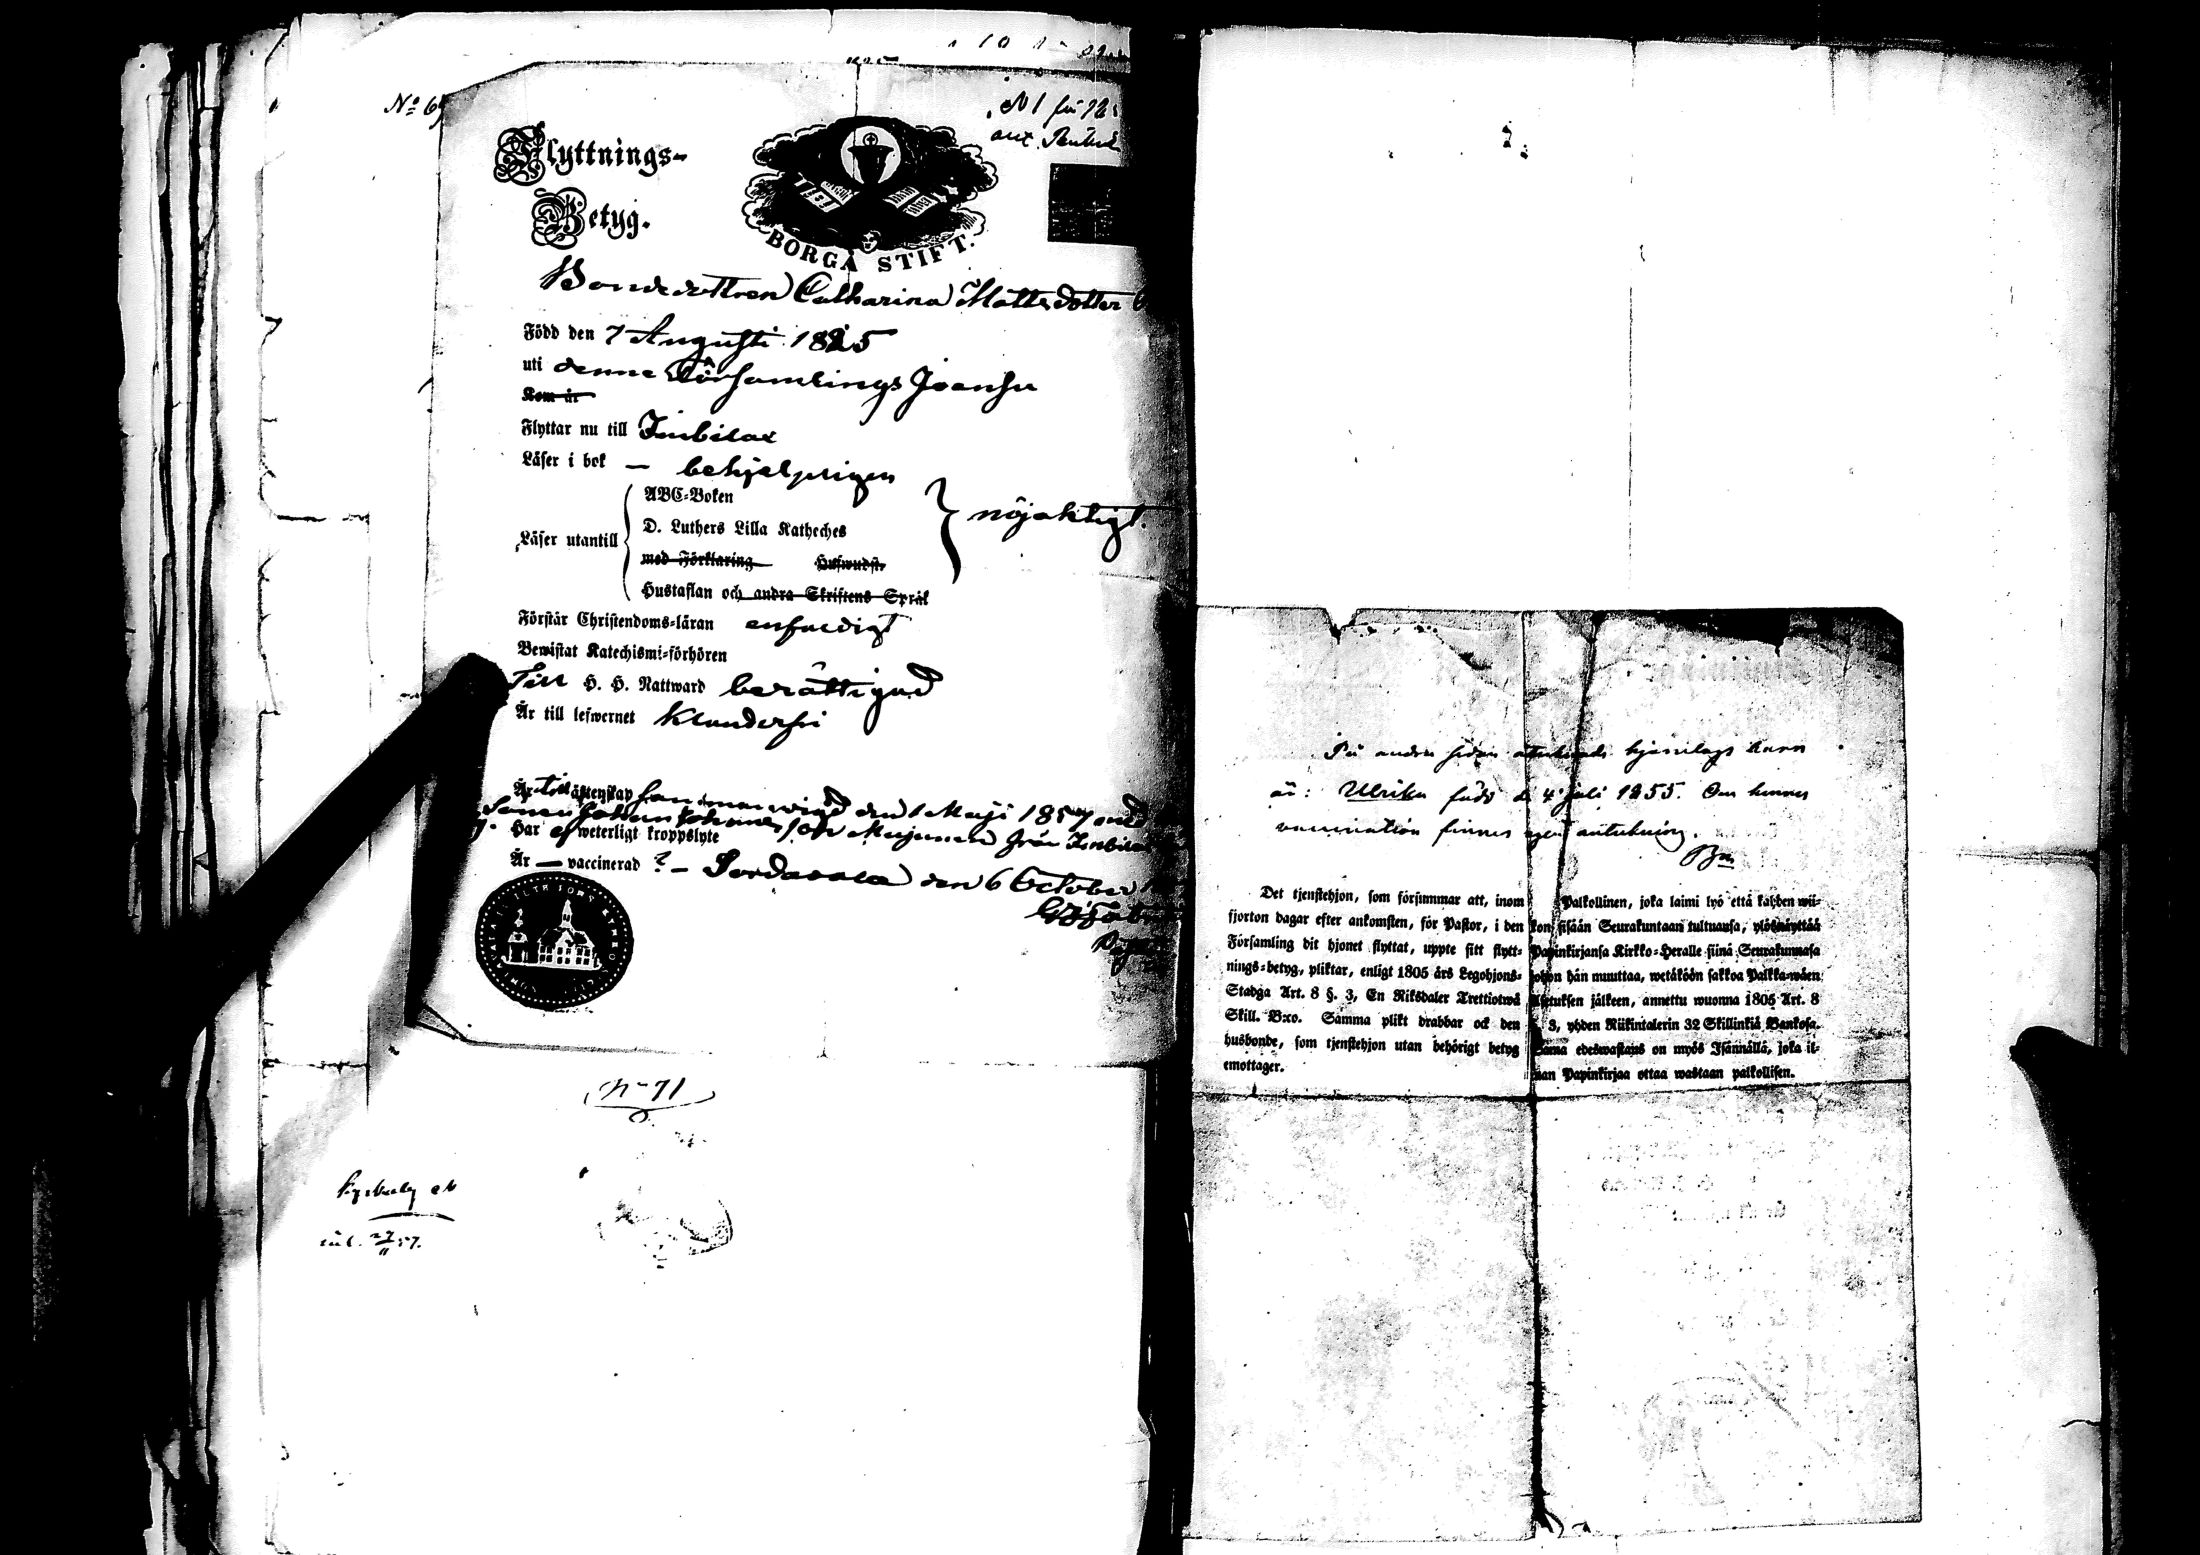 No 69
Flyttnings-
Betyg.
BORGÅ STIFT.
Bondedottren Catharina Mattsdotter
Född den 7 Augusti 1825
uti denne Församlings Joensu
Kom år
Flyttar nu till Imbilax
Läser i bok — behjelpligen
ABC-Boken
D. Luthers Lilla Katheches
med Förklaring Husswudst.
Läser utantill
nöjaktigt.
Hustaflan och andra Skriftens Språk
Förstår Christendoms-läran enfaldigt
Bewistat Katechismi-förhören
Till H. H. Nattward berättigad
Är till lefwernet klanderfri
Är till äktenskap sammanwigd den 1 Maji 1857 med
Sonen Johan Johansson Mujunen från Imbilax
Har ej weterligt kroppslyte
Är — vaccinerad ? – Sordavala den 6 October
N 71
inl. 27/11 57.
På andra sidan hjonelags barn
är: Ulrika född d 4 Juli 1855. Om hennes
vaccination finnes ingen anteckning.
Det tjenstehjon, som försummar att, inom
fjorton dagar efter ankomsten, för Pastor, i den
Församling dit hjonet flyttat, uppte sitt flytt-
nings-betyg, pliktar, enligt 1805 års Legohjons-
Stadga Art. 8 §. 3, En Riksdaler Trettiotwå
Skill. B:co. Samma plikt drabbar ock den
husbonde, som tjenstehjon utan behörigt betyg
emottager.
Palkollinen, joka laimi lyö että kahden wii-
kon sisään Seurakuntaan tultuansa, ylösnäyttää
Papinkirjansa Kirkko-Heralle siinä Seurakunnasa
johon hän muuttaa, wetäköön sakkoa Palkka-wäen
Asetuksen jälkeen, annettu wuonna 1805 Art. 8
§. 3, yhden Riikintalerin 32 Skillinkiä Bankosa.
Sama edeswastaus on myös Isännällä, joka il-
man Papinkirjaa ottaa wastaan palkollisen.